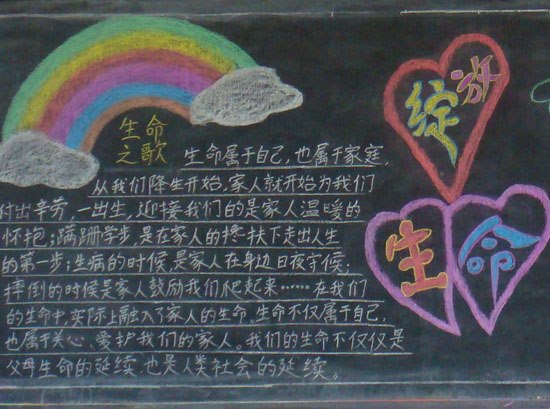 生命
之歌
生命属于自己,也属于家庭,
从我们降生开始,家人就开始为我们
付出辛劳,一出生,迎接我们的是家人温暖的
怀抱;蹒跚学步,是在家人的搀扶下走出人生
的第一步;生病的时候,是家人在身边日夜守候;
摔倒的时候是家人鼓励我们爬起来……在我们
的生命中,实际上融入了家人的生命,生命不仅属于自己,
也属于关心、爱护我们的家人。我们的生命不仅仅是
父母生命的延续,也是人类社会的延续。
绽放
生命